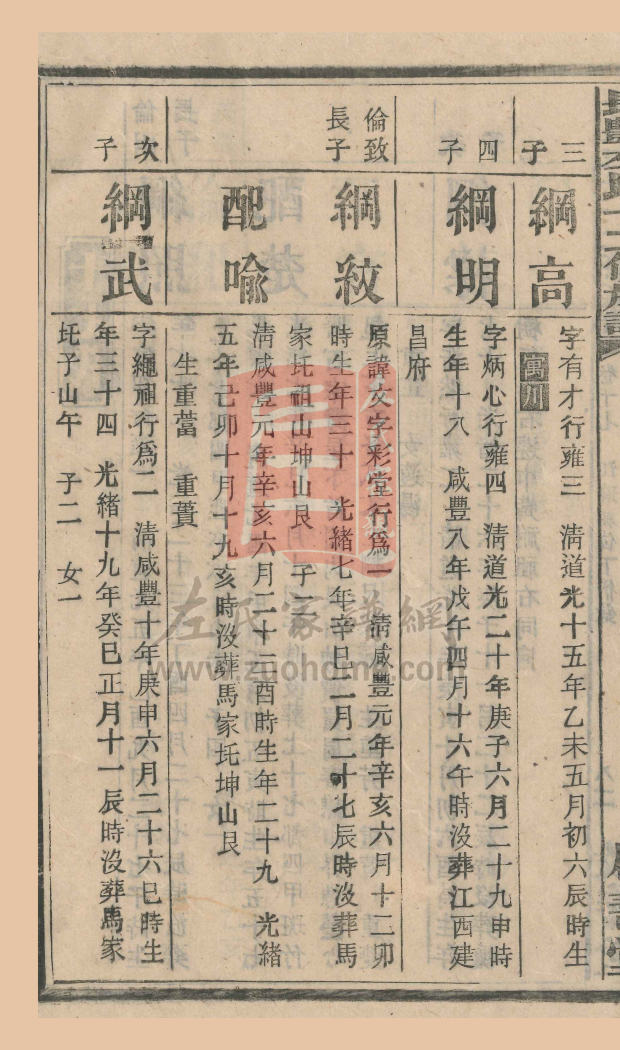 三子
綱高
字有才行雍三 淸道光十五年乙未五月初六辰時生
寓川
四子
綱明
字炳心行雍四 淸道光二十年庚子六月二十九申時
生年十八 咸豐八年戊午四月十六午時沒葬江西建
昌府
倫致長子
綱紋
原諱文字彩堂行爲一 淸咸豐元年辛亥六月十二卯
時生年三十 光緒七年辛巳二月二十七辰時沒葬馬
家圫祖山坤山艮 子二
配喩
淸咸豐元年辛亥六月二十二酉時生年二十九 光緒
五年己卯十月十九亥時沒葬馬家圫坤山艮
生重蕾 重蕡
次子
綱武
字繩祖行爲二 淸咸豐十年庚申六月二十六巳時生
年三十四 光緒十九年癸巳正月十一辰時沒葬馬家
圫子山午 子二 女一
左氏家譜網
www.zuohome.com